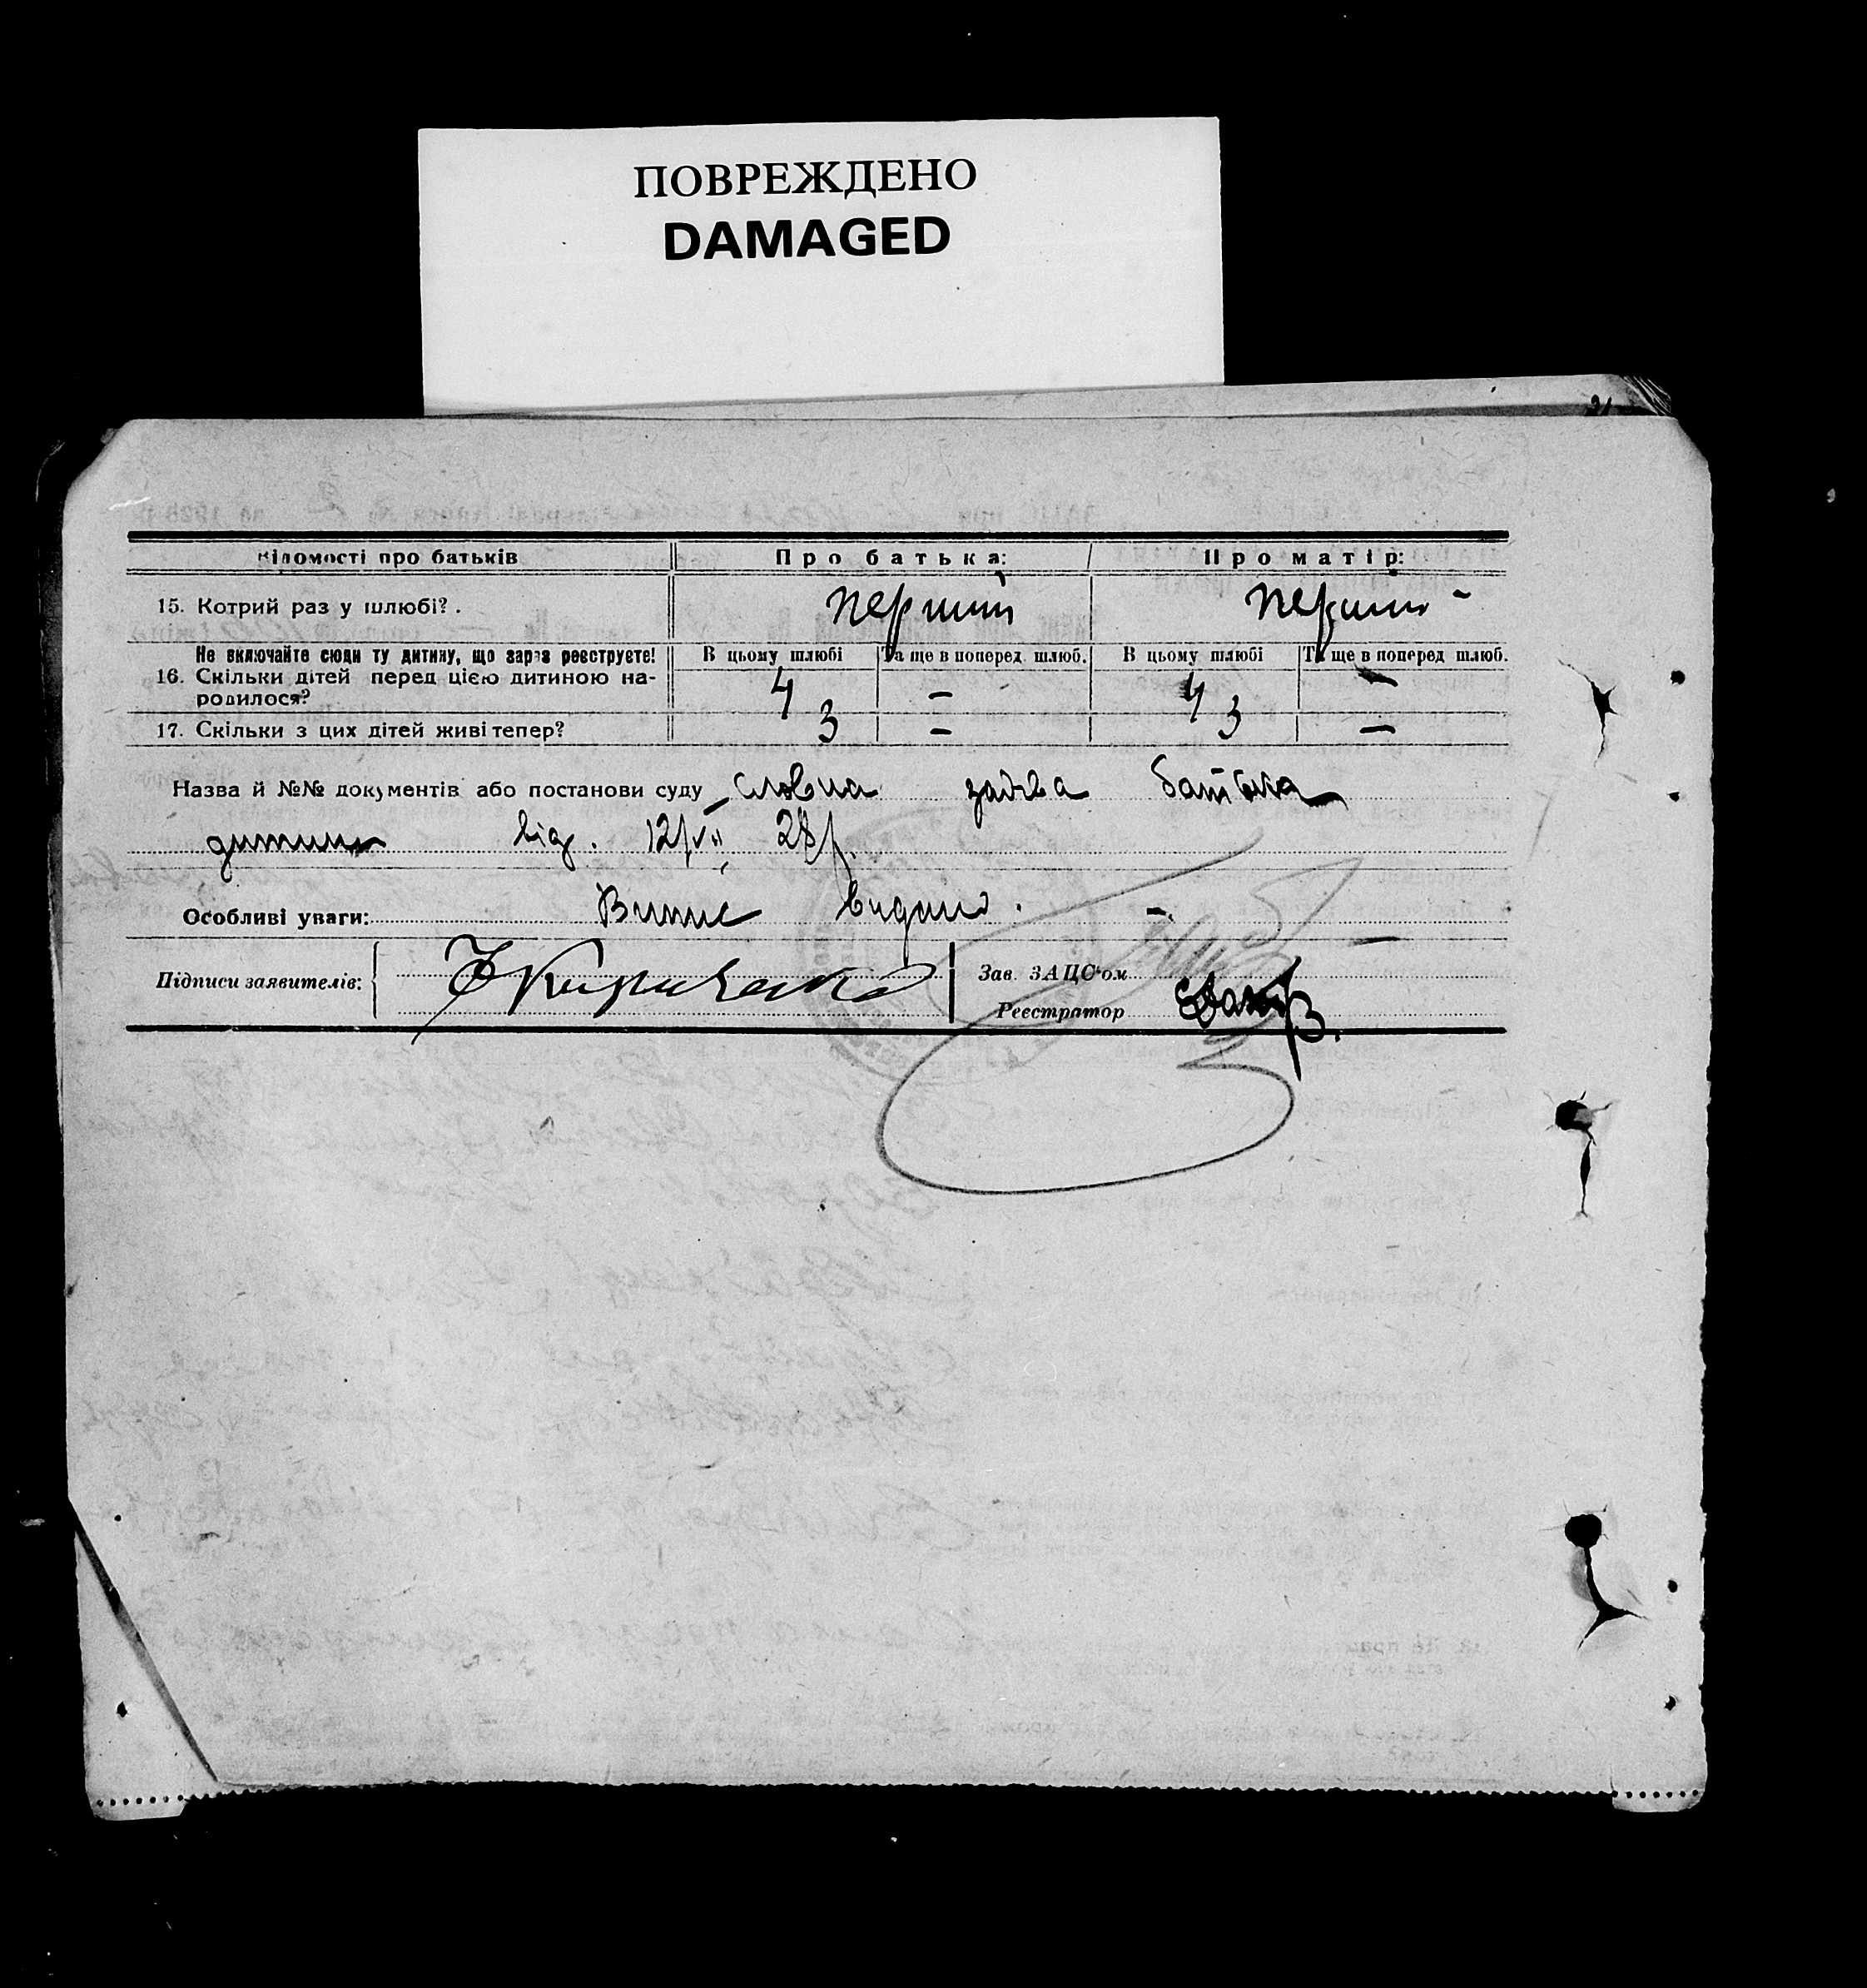 ПОВРЕЖДЕНО
DAMAGED
Відомості про батьків Про батька: Про матір:
15. Котрий раз у шлюбі? . перший перший -
Не включайте сюди ту дитину, що зараз реєструєте! В цьому шлюбі Та ще в поперед. шлюб. В цьому шлюбі Та ще в поперед шлюб.
16. Скільки дітей перед цією дитиною на-
родилося? 4 — 4 —
17. Скільки з цих дітей живі тепер? 3 — 3 —
Назва й №№ документів або постанови суду словна заява батька
дитини від. 12/VII 28 р.
Особливі уваги: Витяг видано. —
Підписи заявителів: Кириченко Зав. ЗАЦС'ом
Реєстратор